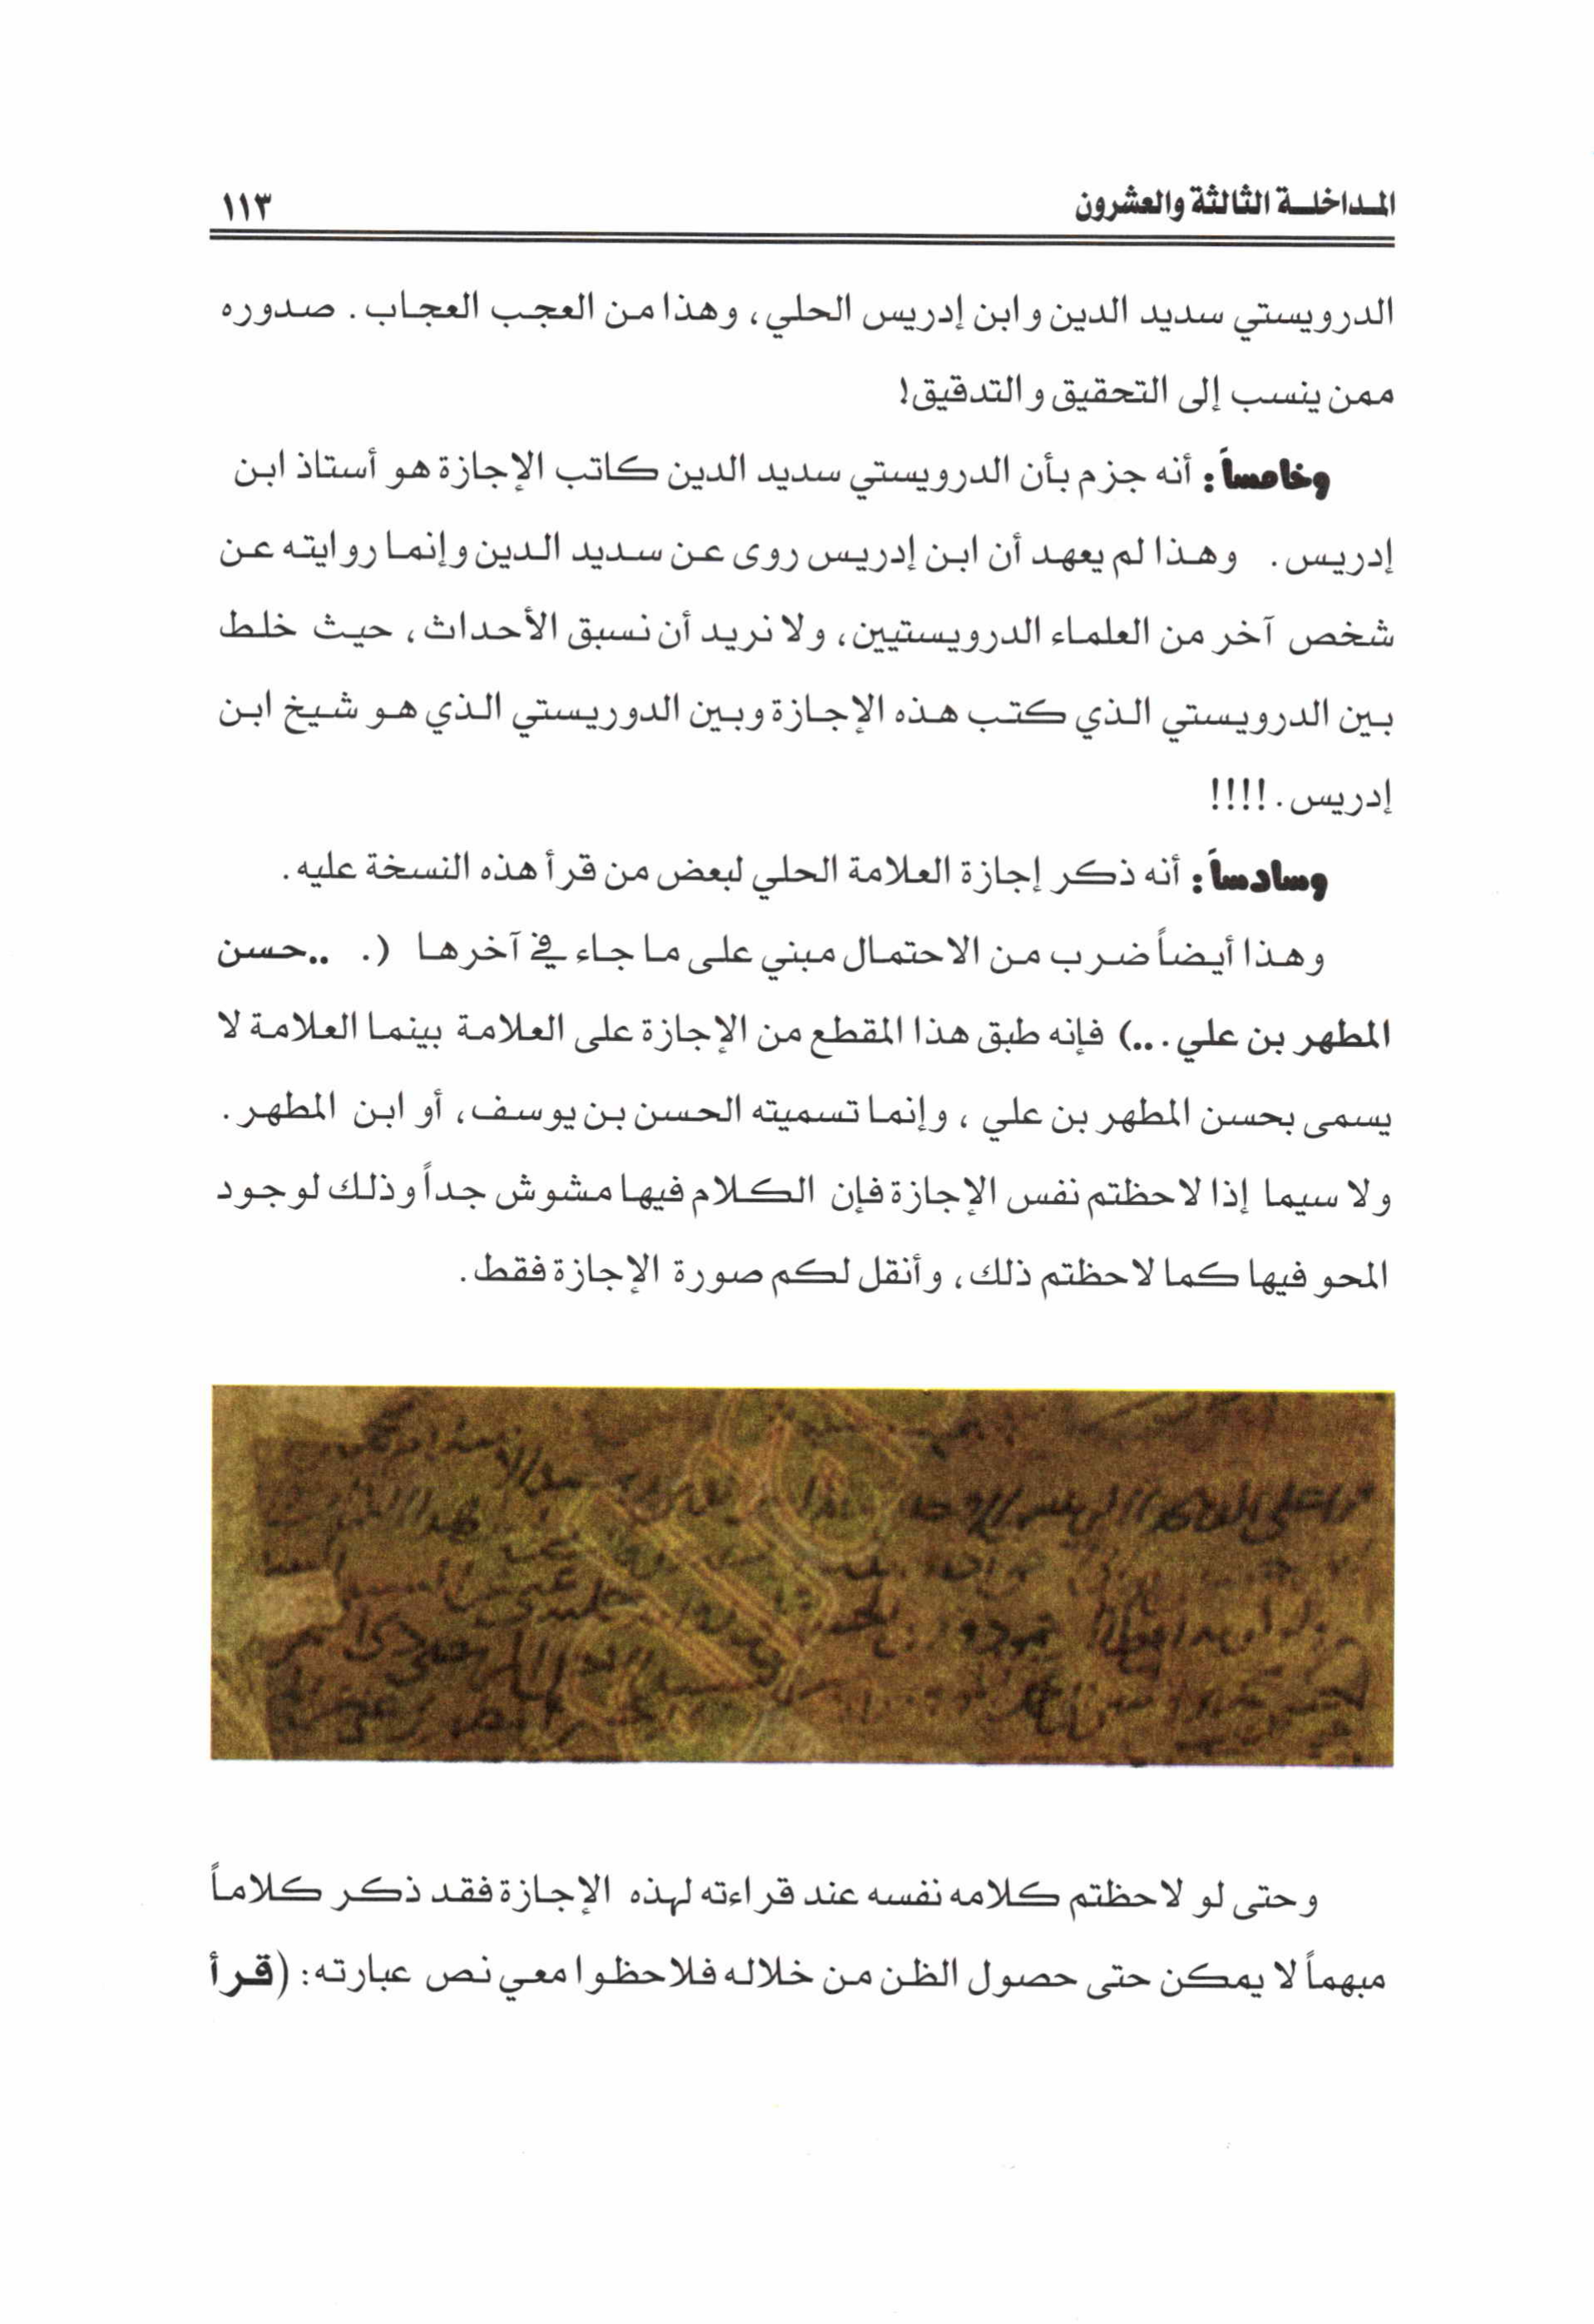 المداخلة الثالثة والعشرون ١١٣
الدرويستي سديد الدين وابن إدريس الحلي، وهذا من العجب العجاب. صدوره
ممن ينسب إلى التحقيق والتدقيق!
وخامساً: أنه جزم بأن الدرويستي سديد الدين كاتب الإجازة هو أستاذ ابن
إدريس. وهذا لم يعهد أن ابن إدريس روى عن سديد الدين وإنما روايته عن
شخص آخر من العلماء الدرويستيين، ولا نريد أن نسبق الأحداث، حيث خلط
بين الدرويستي الذي كتب هذه الإجازة وبين الدوريستي الذي هو شيخ ابن
إدريس.!!!!
وسادساً: أنه ذكر إجازة العلامة الحلي لبعض من قرأ هذه النسخة عليه.
وهذا أيضاً ضرب من الاحتمال مبني على ما جاء في آخرها (. ..حسن
المطهر بن علي...) فإنه طبق هذا المقطع من الإجازة على العلامة بينما العلامة لا
يسمى بحسن المطهر بن علي ، وإنما تسميته الحسن بن يوسف، أو ابن المطهر.
ولا سيما إذا لاحظتم نفس الإجازة فإن الكلام فيها مشوش جداً وذلك لوجود
المحو فيها كما لاحظتم ذلك، وأنقل لكم صورة الإجازة فقط.
وحتى لو لاحظتم كلامه نفسه عند قراءته لهذه الإجازة فقد ذكر كلاماً
مبهماً لا يمكن حتى حصول الظن من خلاله فلاحظوا معي نص عبارته: (قرأ